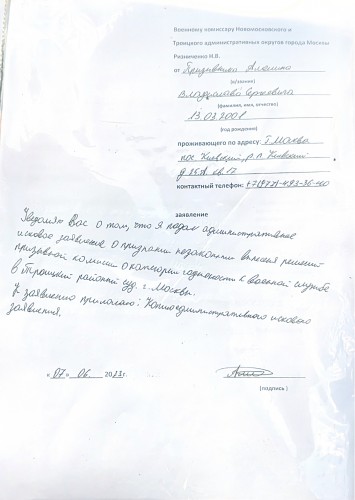 Военному комиссару Новомосковского и
Троицкого административных округов города Москвы
Резниченко И.В.
от Призывника Алюшина
(в/звание)
Владислава Сергеевича
(фамилия, имя, отчество)
13.03.2001
(год рождения)
проживающего по адресу: г. Москва
пос. Киевский р.п. Киевский
д 25А кв. 17
контактный телефон: +7(977)-493-36-40
заявление
Уведомляю Вас о том, что я подал административное
исковое заявление о признании незаконным решения
призывной комиссии о категории годности к военной службе
в Троицкий районный суд. г. Москвы.
К заявлению прилагаю: Копию административного искового
заявления.
« 07 » 06 2021 г.
(подпись)